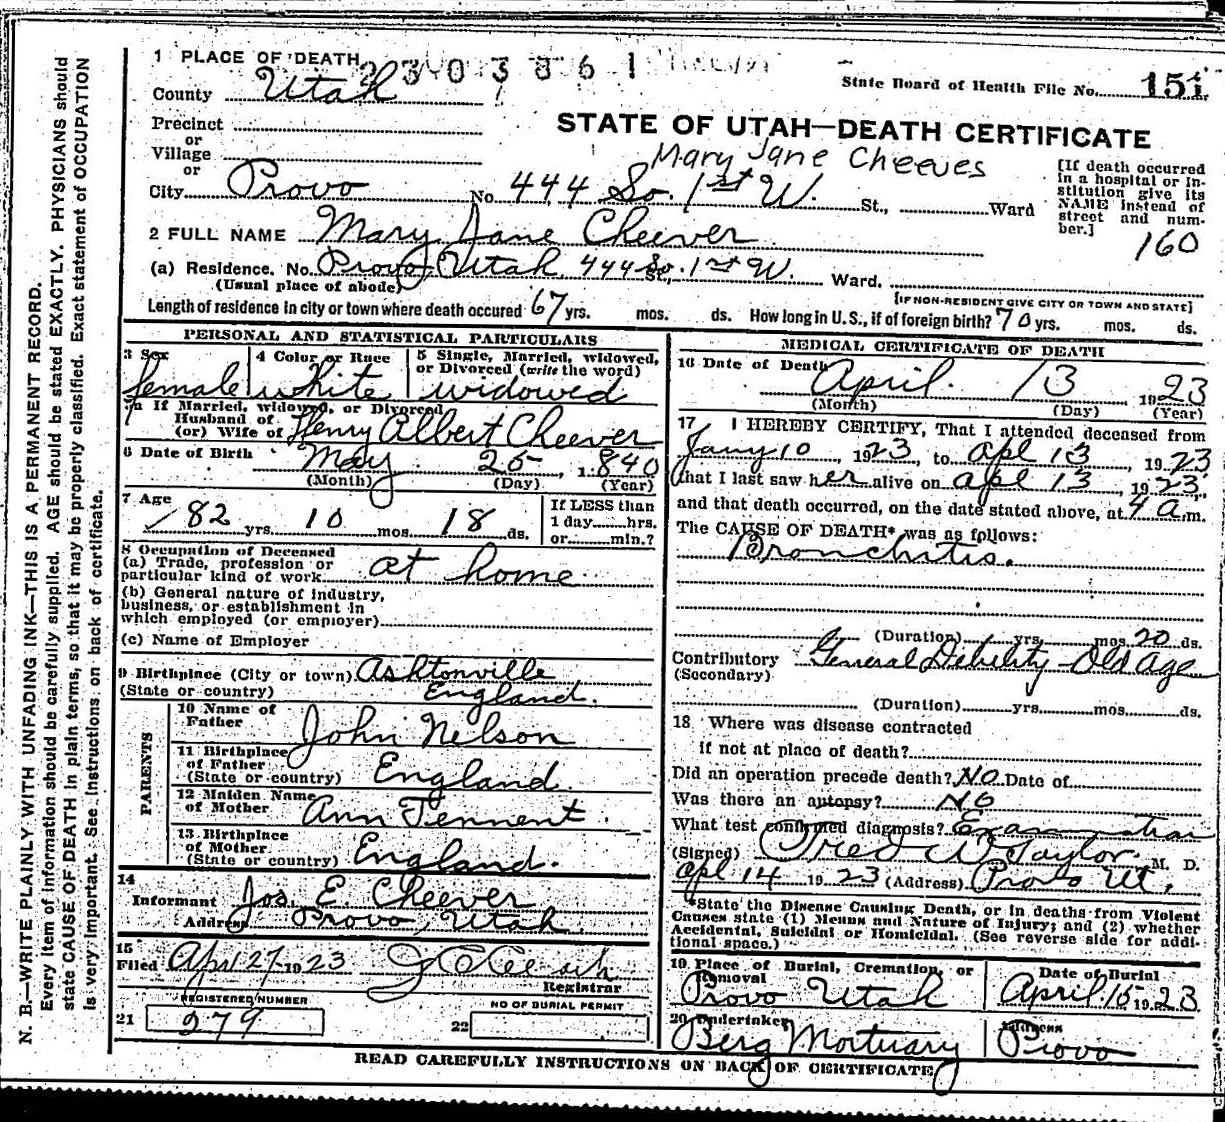 1 PLACE OF DEATH
2303861
State Board of Health File No. 151
County Utah
Precinct
or
Village
or
City Provo No 444 So. 1st W. St., Ward
STATE OF UTAH—DEATH CERTIFICATE
Mary Jane Cheeves
[If death occurred
in a hospital or in-
stitution give its
NAME instead of
street and num-
ber.]
160
2 FULL NAME Mary Jane Cheever
(a) Residence. No. Provo Utah 444 So. St., 1st W. Ward.
(Usual place of abode)
[IF NON-RESIDENT GIVE CITY OR TOWN AND STATE]
Length of residence in city or town where death occured 67 yrs. mos. ds. How long in U.S., if of foreign birth? 70 yrs. mos. ds.
PERSONAL AND STATISTICAL PARTICULARS
3 Sex female
4 Color or Race white
5 Single, Married, widowed,
or Divorced (write the word)
widowed
If Married, widowed, or Divorced
Husband of
(or) Wife of Henry Albert Cheever
6 Date of Birth May 25, 1840
(Month) (Day) (Year)
7 Age
82 yrs. 10 mos. 18 ds.
If LESS than
1 day hrs.
or min.?
8 Occupation of Deceased
(a) Trade, profession or
particular kind of work at home
(b) General nature of industry,
business, or establishment in
which employed (or employer)
(c) Name of Employer
9 Birthplace (City or town) Ashtonville
(State or country) England.
PARENTS
10 Name of
Father John Nelson
11 Birthplace
of Father
(State or country) England.
12 Maiden Name
of Mother Ann Tennent.
13 Birthplace
of Mother
(State or country) England.
14
Informant Jos. E. Cheever
Address Provo, Utah
15
Filed Apr 27 1923
Registrar
REGISTERED NUMBER
21 279
NO OF BURIAL PERMIT
22
MEDICAL CERTIFICATE OF DEATH
16 Date of Death April. 13 1923
(Month) (Day) (Year)
17 I HEREBY CERTIFY, That I attended deceased from
Jany 10, 1923, to Apl 13, 1923
that I last saw her alive on Apl 13, 1923
and that death occurred, on the date stated above, at 4 a.m.
The CAUSE OF DEATH* was as follows:
Bronchitis.
(Duration) yrs. mos. 20 ds.
Contributory General Debility - Old Age
(Secondary)
(Duration) yrs. mos. ds.
18 Where was disease contracted
if not at place of death?
Did an operation precede death? No Date of
Was there an autopsy? No
What test confirmed diagnosis? Examination
(Signed) Fred W Taylor. M. D.
Apl 14 1923 (Address) Provo Ut.
*State the Disease Causing Death, or in deaths from Violent
Causes state (1) Means and Nature of Injury; and (2) whether
Accidental, Suicidal or Homicidal. (See reverse side for addi-
tional space.)
19 Place of Burial, Cremation, or
Removal
Provo Utah
Date of Burial
April. 15 1923
20 Undertaker
Berg Mortuary
Address
Provo
READ CAREFULLY INSTRUCTIONS ON BACK OF CERTIFICATE
N. B.—WRITE PLAINLY WITH UNFADING INK—THIS IS A PERMANENT RECORD.
Every item of information should be carefully supplied. AGE should be stated EXACTLY. PHYSICIANS should
state CAUSE OF DEATH in plain terms, so that it may be properly classified. Exact statement of OCCUPATION
is very important. See instructions on back of certificate.